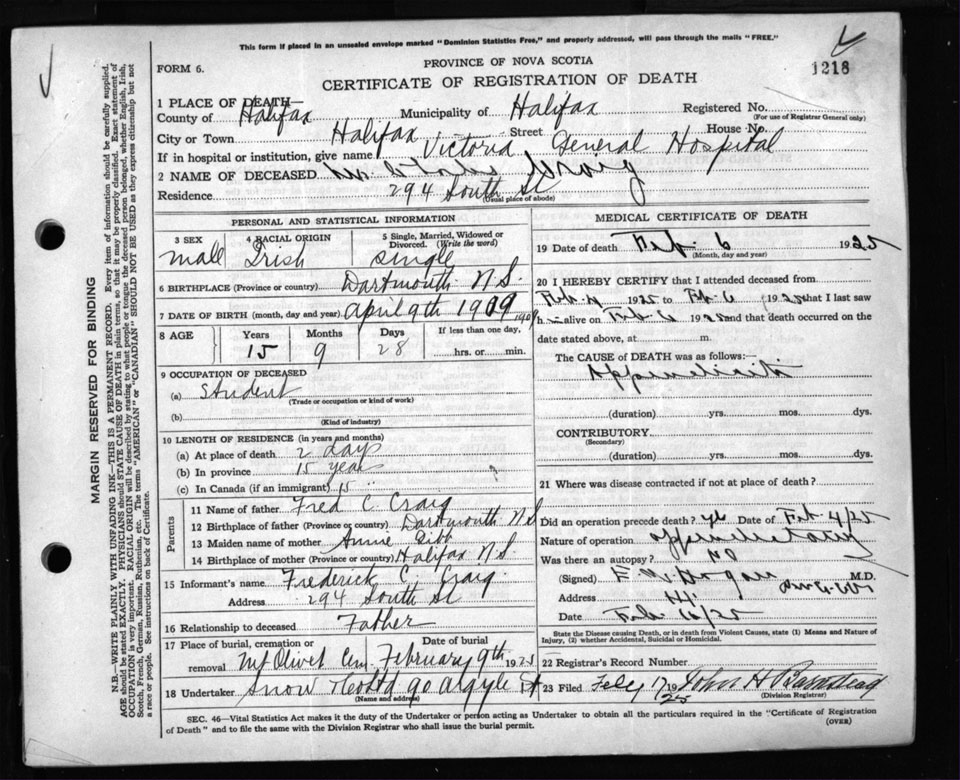 This form if placed in an unsealed envelope marked "Dominion Statistics Free," and properly addressed, will pass through the mails "FREE."
FORM 6.
PROVINCE OF NOVA SCOTIA
1218
CERTIFICATE OF REGISTRATION OF DEATH
1 PLACE OF DEATH—
County of Halifax Municipality of Halifax Registered No.
(For use of Registrar General only)
City or Town Halifax Street House No.
If in hospital or institution, give name Victoria General Hospital
2 NAME OF DECEASED Craig
Residence 294 South St
(Usual place of abode)
PERSONAL AND STATISTICAL INFORMATION
3 SEX 4 RACIAL ORIGIN 5 Single, Married, Widowed or Divorced. (Write the word)
Male Irish Single
6 BIRTHPLACE (Province or country) Dartmouth N.S.
7 DATE OF BIRTH (month, day and year) April 9th 1909 1909
8 AGE Years Months Days If less than one day,
15 9 28 hrs. or min.
9 OCCUPATION OF DECEASED
(a) Student
(Trade or occupation or kind of work)
(b)
(Kind of industry)
10 LENGTH OF RESIDENCE (in years and months)
(a) At place of death 2 days
(b) In province 15 years
(c) In Canada (if an immigrant) 15
Parents
11 Name of father Fred C. Craig
12 Birthplace of father (Province or country) Dartmouth N.S
13 Maiden name of mother Annie
14 Birthplace of mother (Province or country) Halifax N.S.
15 Informant's name Frederick C. Craig
Address 294 South St
16 Relationship to deceased Father
17 Place of burial, cremation or removal Mt Olivet Cem. Date of burial February 9th 1925
18 Undertaker Snow & Co Ltd 90 Argyle St
(Name and address)
MEDICAL CERTIFICATE OF DEATH
19 Date of death Feb. 6 1925
(Month, day and year)
20 I HEREBY CERTIFY that I attended deceased from
Feb. 4 1925 to Feb. 6 1925 that I last saw
h alive on Feb. 6 1925 and that death occurred on the
date stated above, at m.
The CAUSE OF DEATH was as follows:—
Appendicitis
(duration) yrs. mos. dys.
CONTRIBUTORY
(Secondary)
(duration) yrs. mos. dys.
21 Where was disease contracted if not at place of death?
Did an operation precede death? yes Date of Feb 4/25
Nature of operation
Was there an autopsy? no
(Signed) Hogan M.D.
Address
Date
State the Disease causing Death, or in death from Violent Causes, state (1) Means and Nature of Injury, (2) whether Accidental, Suicidal or Homicidal.
22 Registrar's Record Number
23 Filed Feby 17 1925 John H Barnstead
(Division Registrar)
SEC. 46—Vital Statistics Act makes it the duty of the Undertaker or person acting as Undertaker to obtain all the particulars required in the "Certificate of Registration
of Death" and to file the same with the Division Registrar who shall issue the burial permit.
(OVER)
MARGIN RESERVED FOR BINDING
N.B.—WRITE PLAINLY WITH UNFADING INK—THIS IS A PERMANENT RECORD. Every item of information should be carefully supplied.
AGE should be stated EXACTLY. PHYSICIANS should STATE CAUSE OF DEATH in plain terms, so that it may be properly classified. Exact statement of
OCCUPATION is very important. RACIAL ORIGIN will be described by stating to what people or tongue the deceased person belonged, whether English, Irish,
Scotch, French, German, Russian, Ruthenian, etc. The terms "AMERICAN" or "CANADIAN" SHOULD NOT BE USED as they express citizenship but not
a race or people. See instructions on back of Certificate.